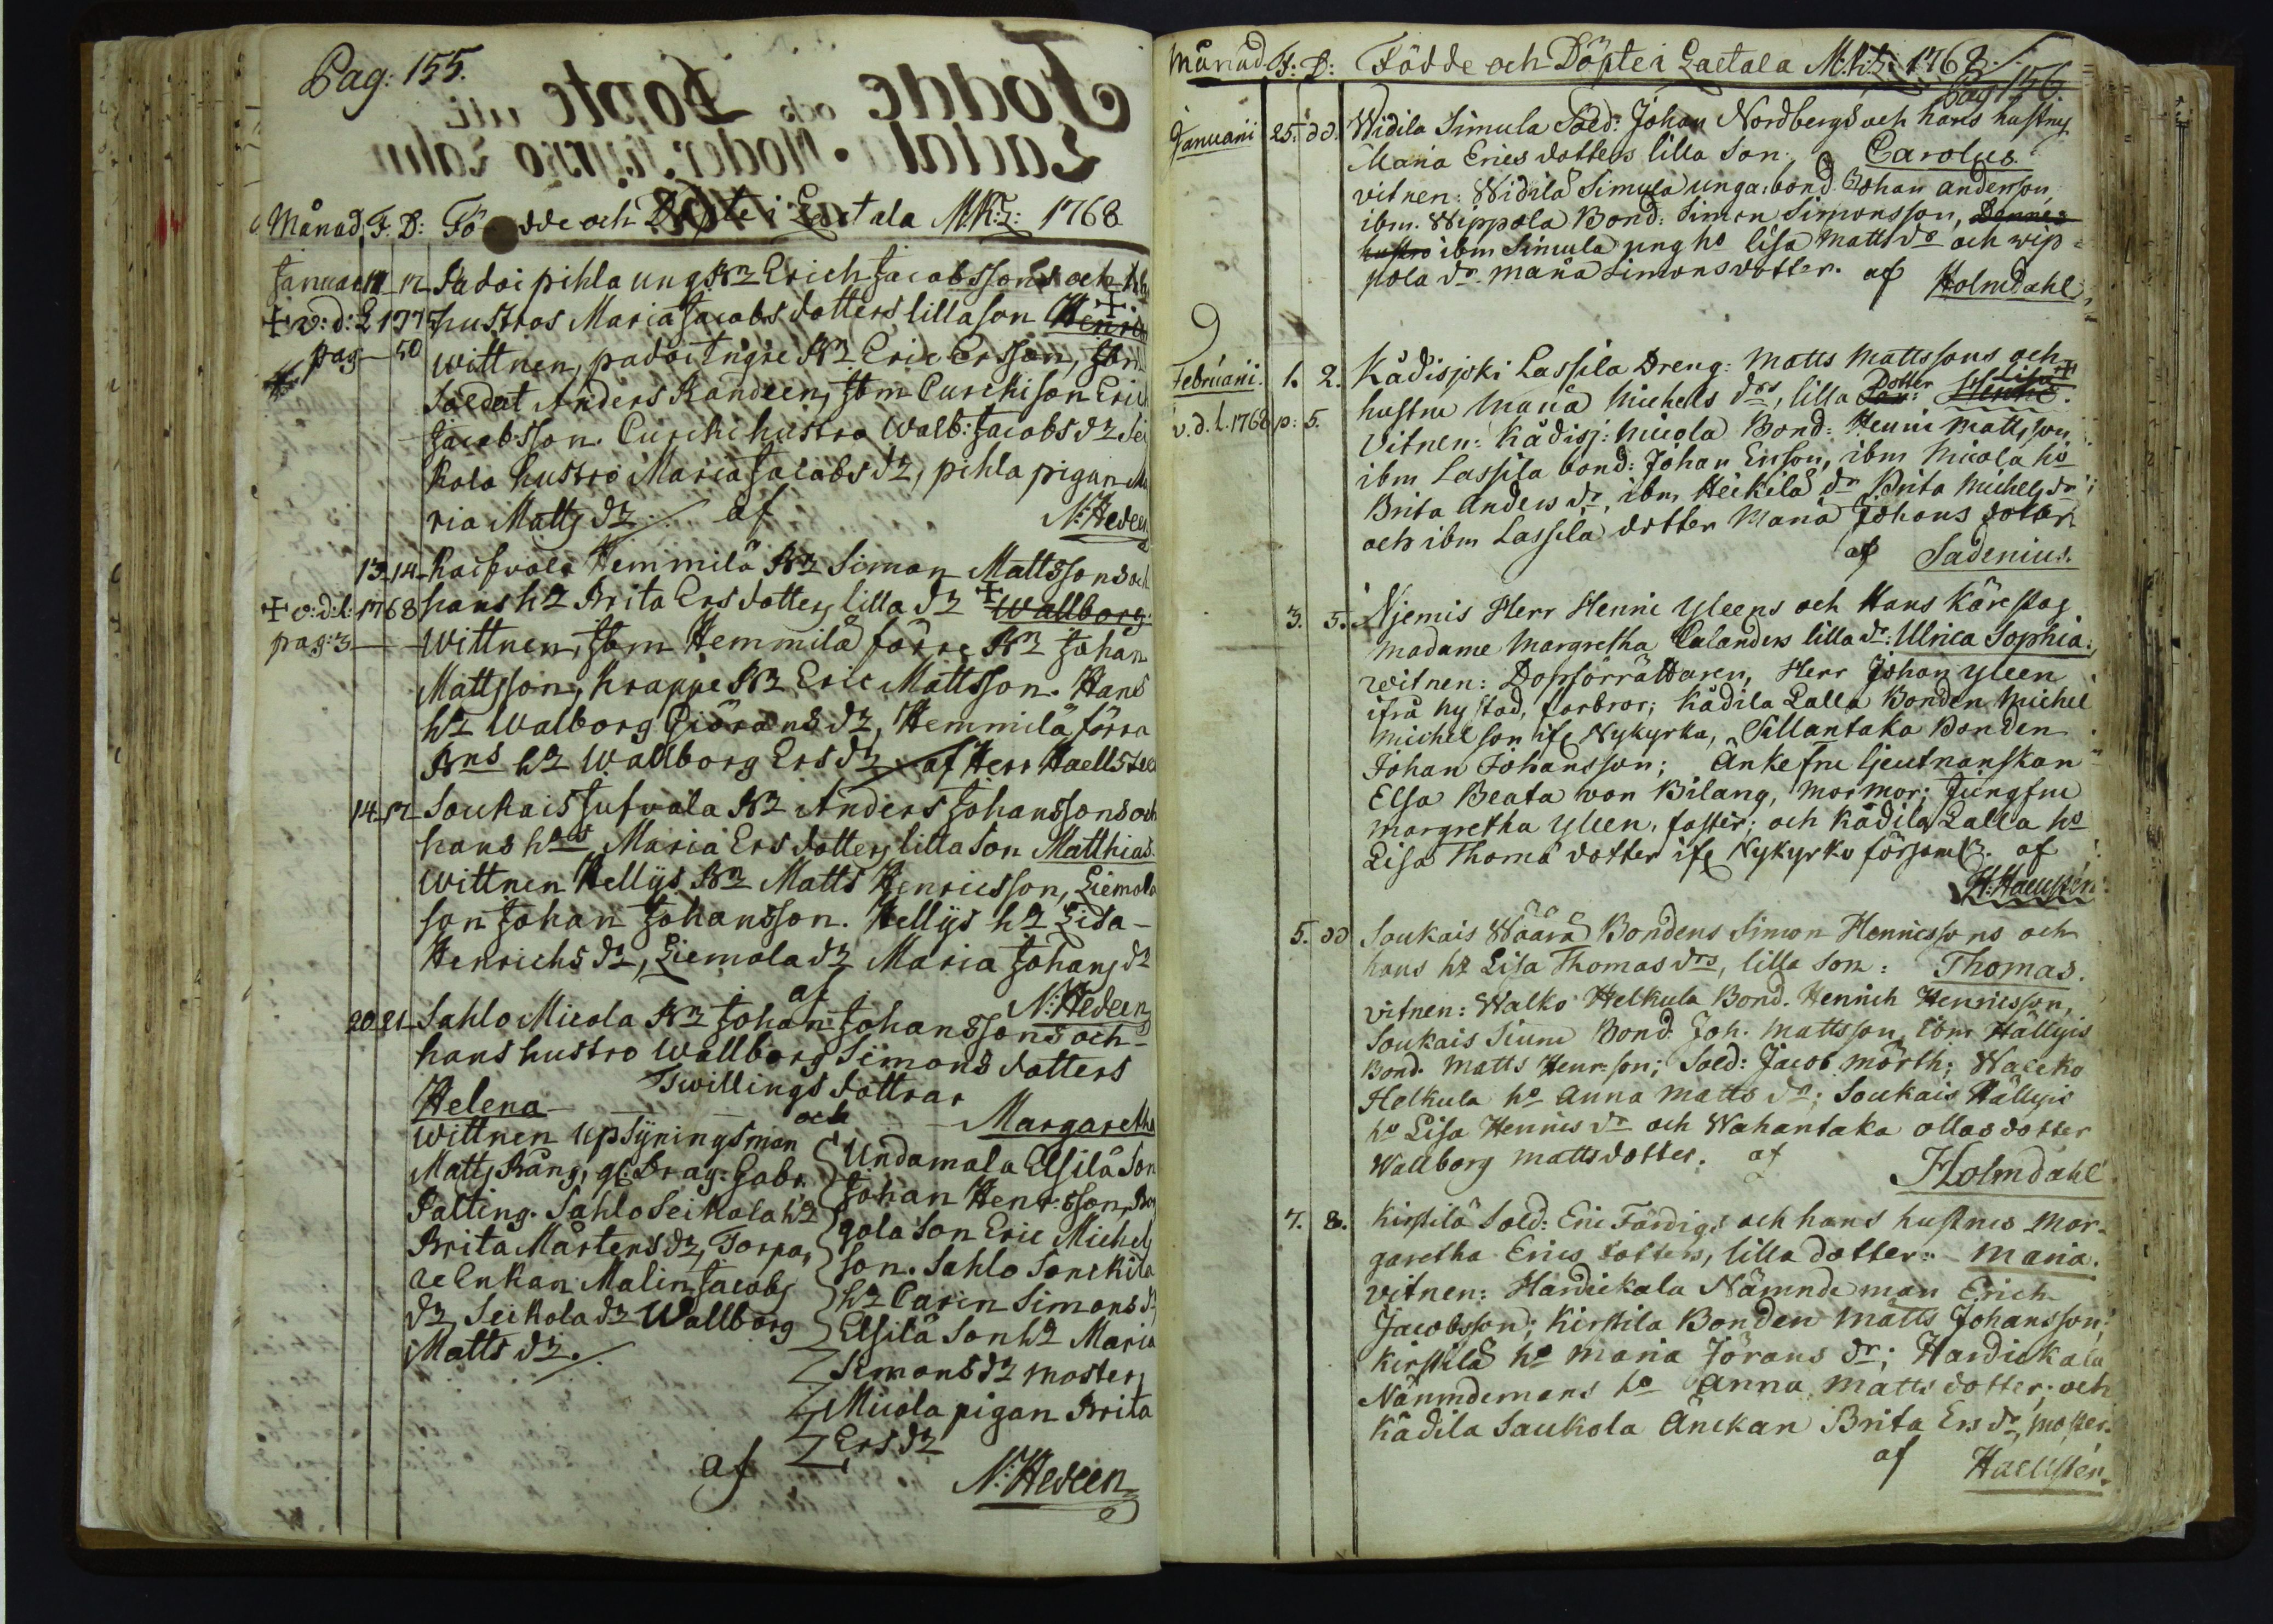 Pag: 155.
Månad F. D: Födde och Döpte i Laetala M:K:a: 1768
Januarii 11 12 Padoi pihla ung Bn Erich Jacobssons och
✝ v: d: L 1775 hustros Maria Jacobs dotters lilla son Henric
pag 50 wittnen, padoi Bn Eric Ersson, Ibm
Soldat Anders Randeen, Ibm Curcki son Eric
Jacobsson. Curcki hustro Walb: Jacobs dr, Sei
kola hustro Maria Jacobs dr, pihla pigan Ma
ria Matts dr. af N: Hedeen
13 14 Raihvola Hemmilä Bn Simon Mattssons och
✝ v: d: l: 1768 hans h Brita Ers dotters lilla dr ✝ Wallborg.
pag: 3 wittnen, Ibm Hemmilä förre Bn Johan
Mattsson, Krappe Bn Eric Mattsson. Hans
h Walborg Giörans dr, Hemmilä förra
Bns h Wallborg Ers dr af Herr Haellsteen
14 17 Soukais Jufvola Bn Anders Johanssons och
hans hos Maria Ers dotters lilla son Matthias.
wittnen Hellys Bn Matts Henricsson, Liemola
son Johan Johansson. Hellys h Lisa
Henrichs dr, Liemola dr Maria Johans dr
af N: Hedeen
20 21 Sahlo Micola Bn Johan Johanssons och
hans hustro Wallborg Simons dotters
Twillings döttrar
Helena och Margaretha
wittnen Upsyningsman
Matts Rång, gl: Drag: Gabr.
Palting. Sahlo Seikola h
Brita Mårtens dr, Torpa,
re Enkan Malin Jacobs
dr, Seikola dr Wallborg
Matts dr.
Undamala Elsilä Son
Johan Henr:sson,
gola Son Eric Michels
son. Sahlo Sonckila
h Carin Simons d
Elsilä Son h Maria
Simons dr moster,
Micola pigan Brita
Ers dr
af N: Hedeen
Månad F: D: Födde och Döpte i Laetala M:k:a: 1768.
Pag 156
Januarii 25. dd. Widila Simula Sold: Johan Nordbergs och hans hustrus
Maria Erics dotters lilla Son: Carolus.
vitnen: Widilä Simula unga bond. Johan anderson,
ibm. Wippola Bond: Simon Simonsson, Dennes
hustro ibm Simula ung ho lisa Matts dr och wip=
pola dr. maria Simonsdotter. af Holmdahl
Februarii. 1. 2. Kådisjoki Lassila Dreng: Matts Mattssons och
v. d. l. 1768 p: 5. hustru maria Michels drs, lilla Son: Dotter Henric. Lisa ✝
Vitnen: Kådisj: Micola Bond: Henric Mattsson
ibm Lassila bond: Johan Ersson, ibm Micola ho
Brita Anders dr, ibm Heikilä dr Brita Michels dr
och ibm Lassila dotter Maria Johans dotter
af Sadenius.
3. 5. Njemis Herr Henric Yleens och Hans Kärestas
Madame Margretha Calanders lilla dr: Ulrica Sophia.
witnen: Dopförrättaren, Herr Johan Yleen
ifrå Nystad, farbror; Kådila Lalla Bonden Michel
Michelson ifr Nykyrka, Sillantaka Bonden
Johan Johansson; Änkefru Ljeutnanskan
Elsa Beata von Bilang, mormor; Jungfru
Margretha Yleen, faster; och Kådila Lalla ho
Lisa Thomä dotter ifr Nykyrko församl. af
H: Haellsten
5. dd Soukais Wäärä Bondens Simon Henricssons och
hans h Lisa Thomas drs, lilla son: Thomas.
vitnen: Walko Helkula Bond. Henrich Henricsson,
Soukais Bond Joh. Mattsson, ibm Hällyis
Bond. Matts Henr:son; Sold: Jacob Mörth; Walcko
Helkula ho Anna Matts dr; Soukais Hällyis
ho Lisa Henrics dr och Wahantaka ollas dotter
Wallborg Mattsdotter. af Holmdahl
7. 8. Kirstilä Sold: Eric Färdigs och hans hustrus Mar-
garetha Erics dotters, lilla dotter: Maria.
vitnen: Hardickala Nämndeman Erich
Jacobsson; Kirstila Bonden Matts Johansson;
Kirstilä ho Maria Jörans dr; Hardickala
Nämndemans ho Anna Matts dotter; och
Kådila Saukola Änckan Brita Ers dr, moster.
af Haellsten.